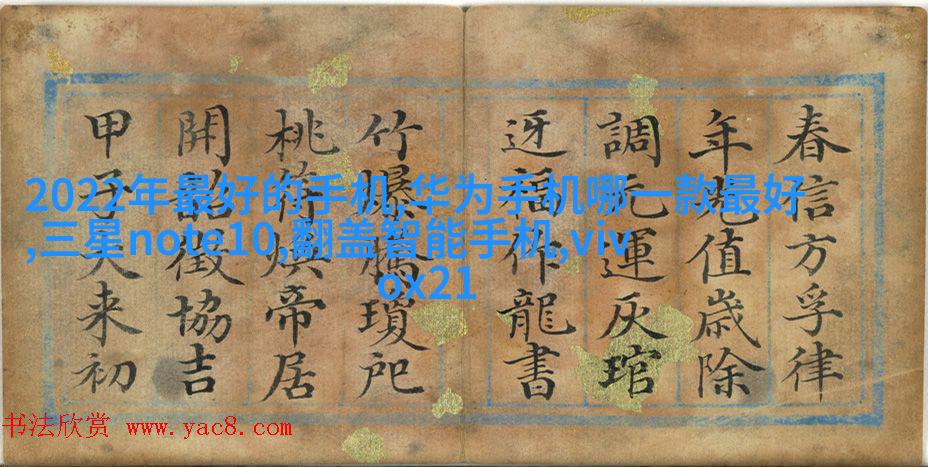 春信方孚律
年光值歳除
調元運灰琯
迓福作龍書
竹爆騰瓊
桃符煥帝居
開韶徵協吉
甲子来初
2022年最好的手机,华为手机哪一款最好
,三星note10,翻盖智能手机,viv
ox21
书法欣赏 www.yac8.com